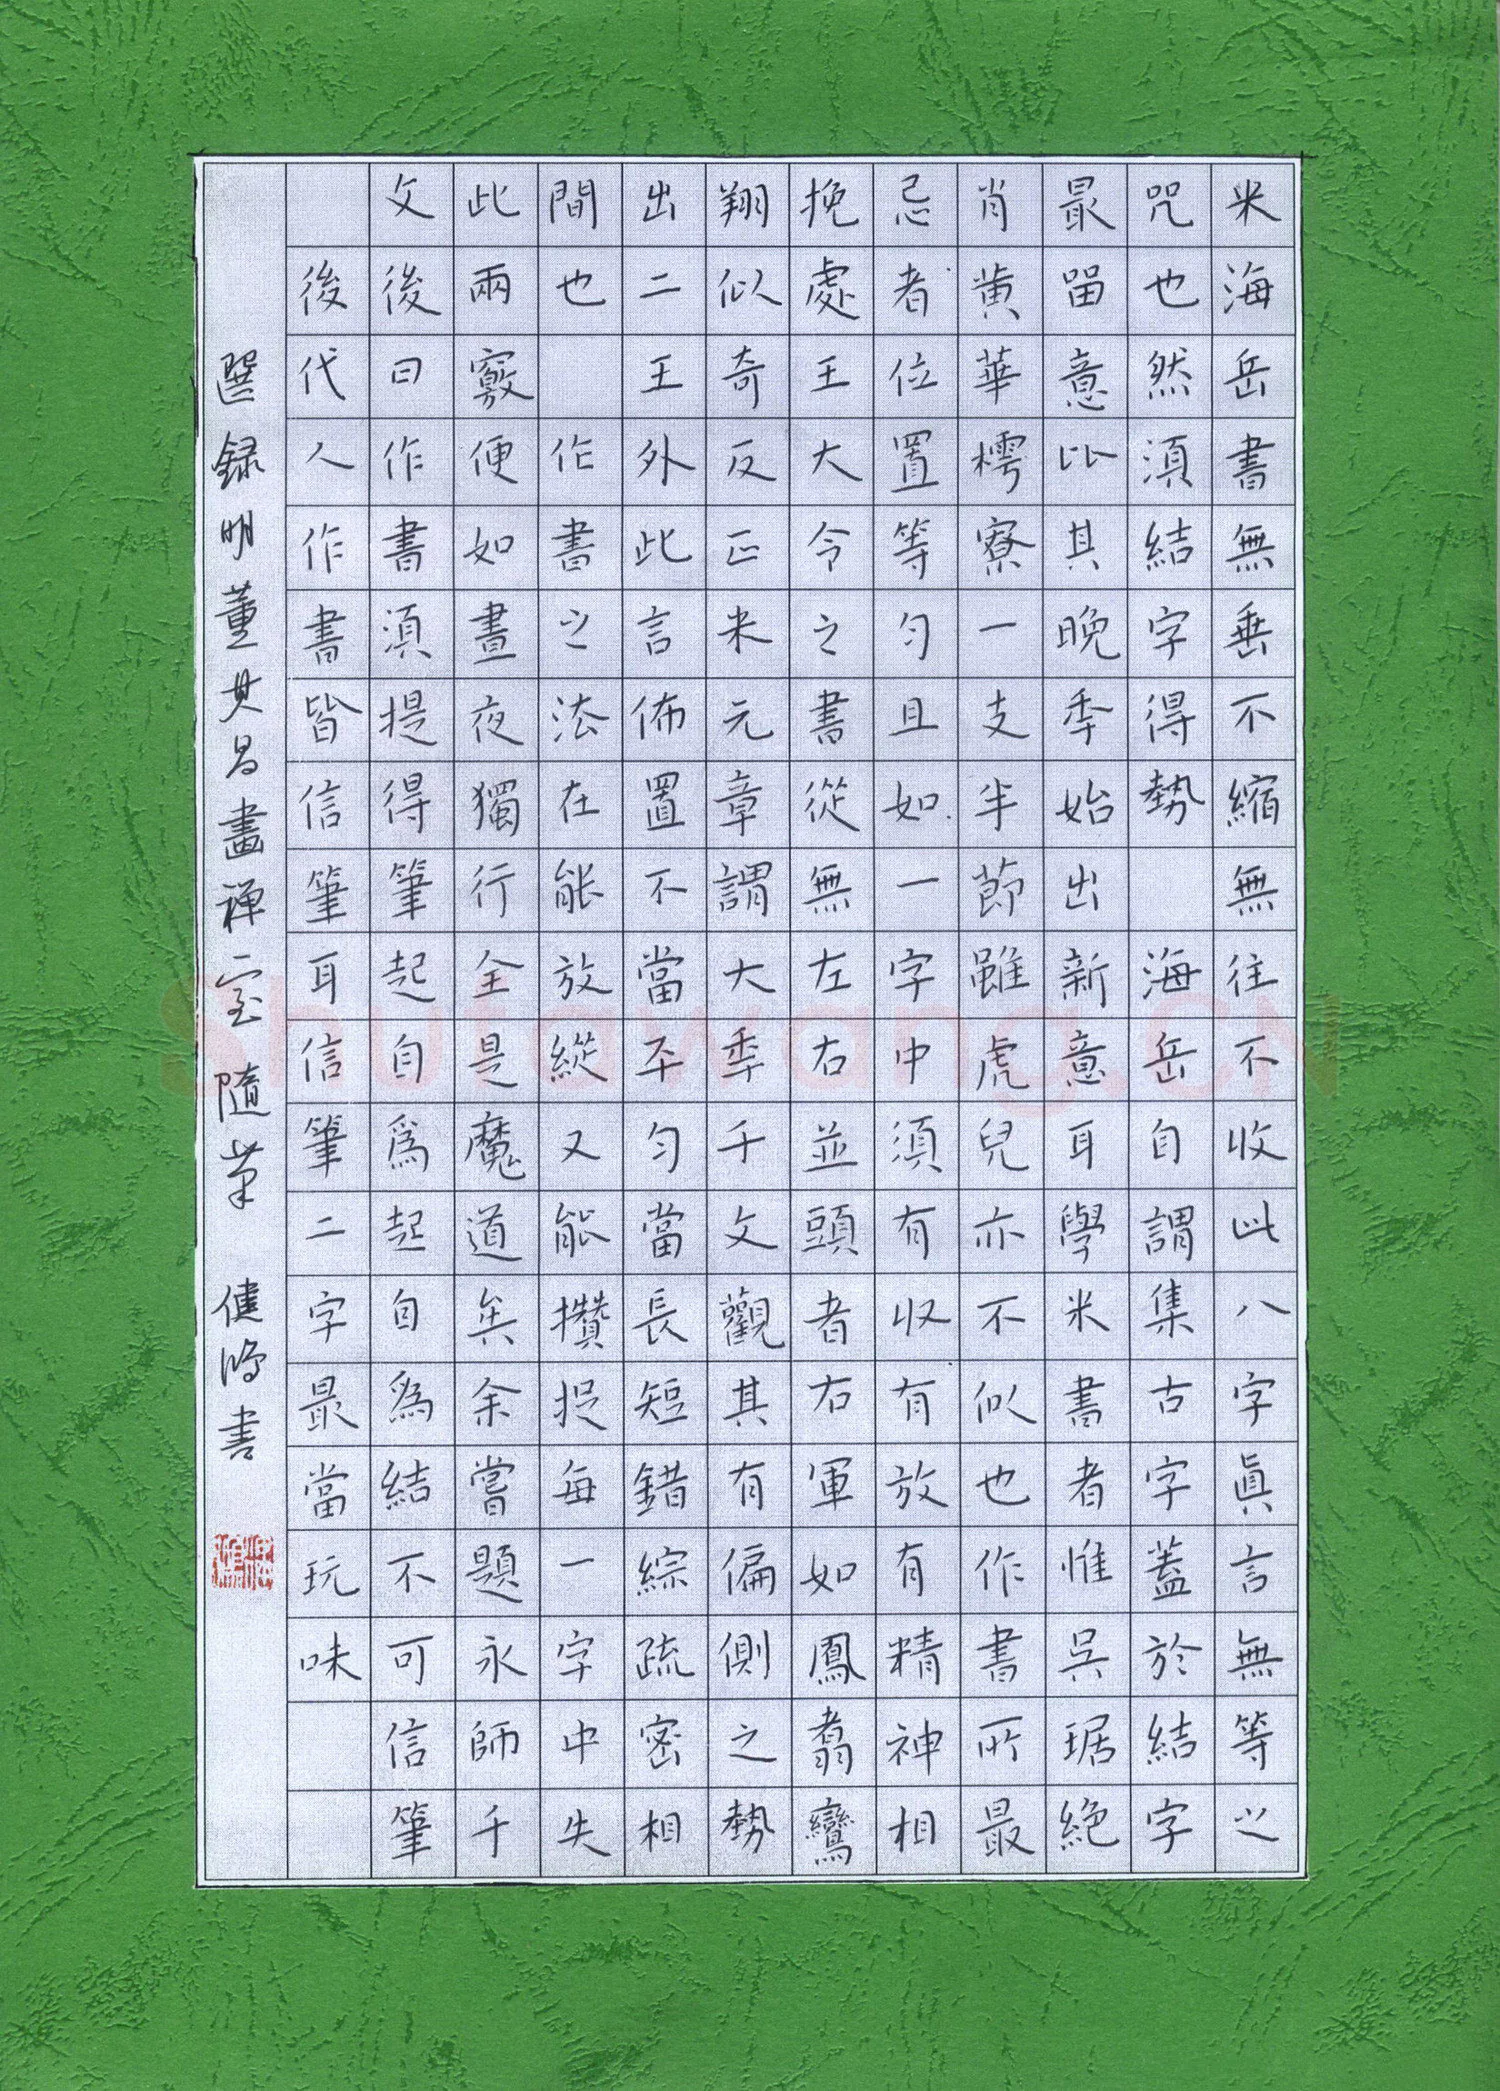 米海岳書無垂不縮無往不收此八字眞言無等之
咒也然須結字得勢 海岳自謂集古字蓋於結字
最留意比其晚秊始出新意耳學米書者惟吳琚絕
肖黄華樗寮一支半節雖虎兒亦不似也作書所最
忌者位置等勻且如一字中須有收有放有精神相
挽處王大令之書從無左右並頭者右軍如鳳翥鸞
翔似奇反正米元章謂大秊千文觀其有偏側之勢
出二王外此言佈置不當平勻當長短錯綜疏密相
間也 作書之法在能放縱又能攢捉每一字中失
此兩竅便如晝夜獨行全是魔道矣余嘗題永師千
文後曰作書須提得筆起自爲起自爲結不可信筆
後代人作書皆信筆耳信筆二字最當玩味
選録明董其昌畫禪室隨筆 健書
Shufawang.CN